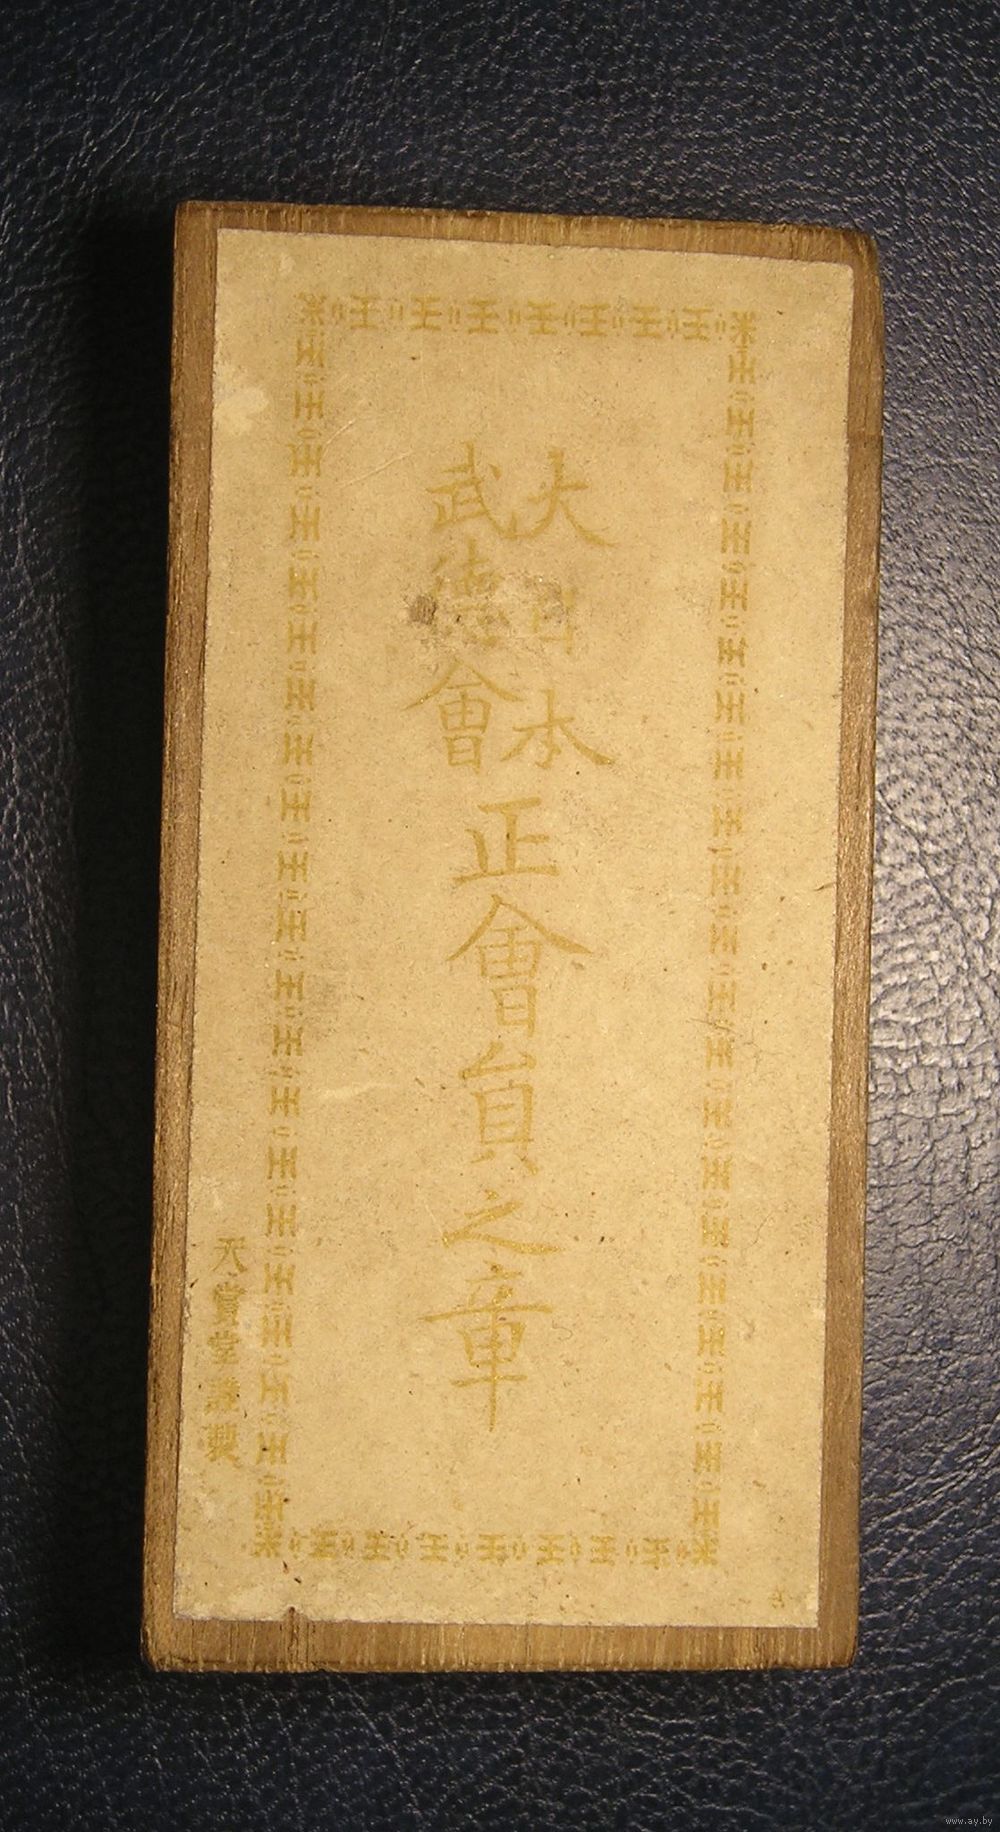 大日本
武德會
正會員之章
天賞堂謹製
www.ay.by